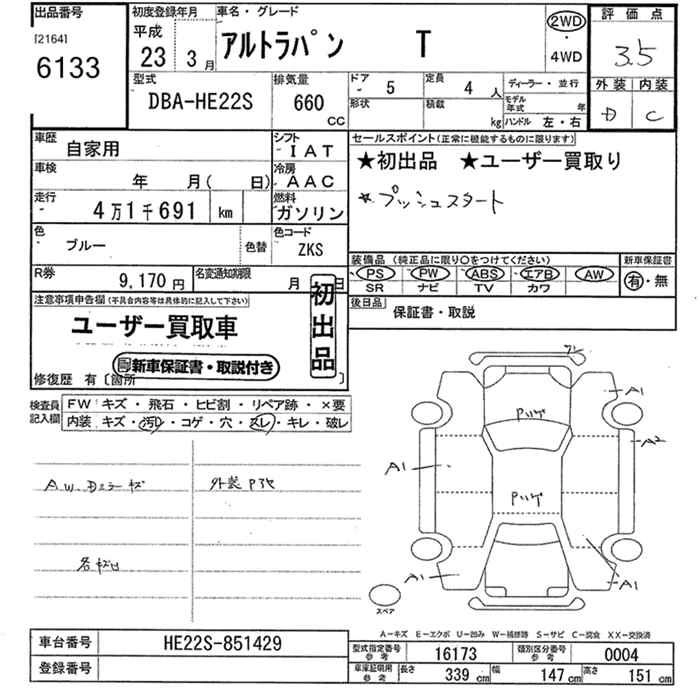 出品番号
[2164]
6133
初度登録年月
平成
23 3月
車名・グレード
アルトラパン T
2WD
・
4WD
評価点
3.5
外装 内装
D C
型式
DBA-HE22S
排気量
660
CC
ドア 5
定員 4 人
ディーラー・並行
形状
積載 kg
モデル年式 年
ハンドル 左・右
車歴
自家用
シフト
IAT
車検
年 月( 日)
冷房
AAC
走行
4万1千691 km
燃料
ガソリン
色
ブルー
色替
色コード
ZKS
R券
9,170円
名変通知期限
月 日
セールスポイント(正常に機能するものに限ります)
★初出品 ★ユーザー買取り
★プッシュスタート
装備品(純正品に限り〇をつけてください)
新車保証書
PS PW ABS エアB AW
SR ナビ TV カワ
有・無
後日品
保証書・取説
注意事項申告欄(不具合内容等は具体的に記入して下さい)
ユーザー買取車
新車保証書・取説付き
初出品
修復歴 有〔箇所
検査員記入欄
FW キズ・飛石・ヒビ割・リペア跡・×要
内装 キズ・汚レ・コゲ・穴・スレ・キレ・破レ
A.W.Dミラーキズ
外装Pヌケ
Pハゲ
Pハゲ
A1
A2
A1
A1
A1
スペア
A-キズ E-エクボ U-凹み W-補修跡 S-サビ C-腐食 XX-交換済
車台番号
HE22S-851429
登録番号
型式指定番号
参考
16173
類別区分番号
参考
0004
車庫証明用
参考
長さ 339 cm
幅 147 cm
高さ 151 cm